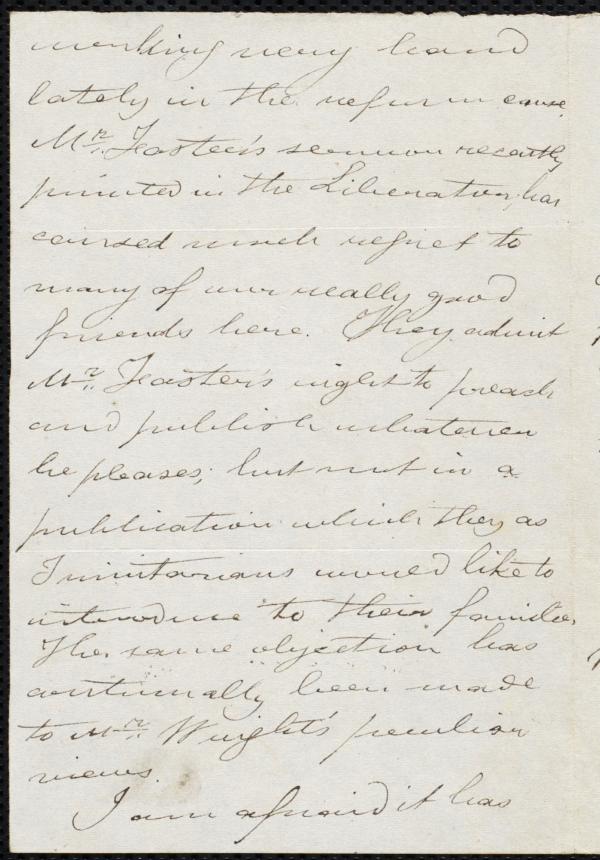 working very hard
lately in the reform cause.
Mr. Foster's sermon recently
printed in the Liberator, has
caused much regret to
many of our really good
friends here. They admit
Mr. Foster's right to preach
and publish whatever
he pleases; but not in a
publication which they as
Trinitarians would like to
introduce to their families.
The same objection has
continually been made
to Mr. Wright's peculiar
views.
I am afraid it has